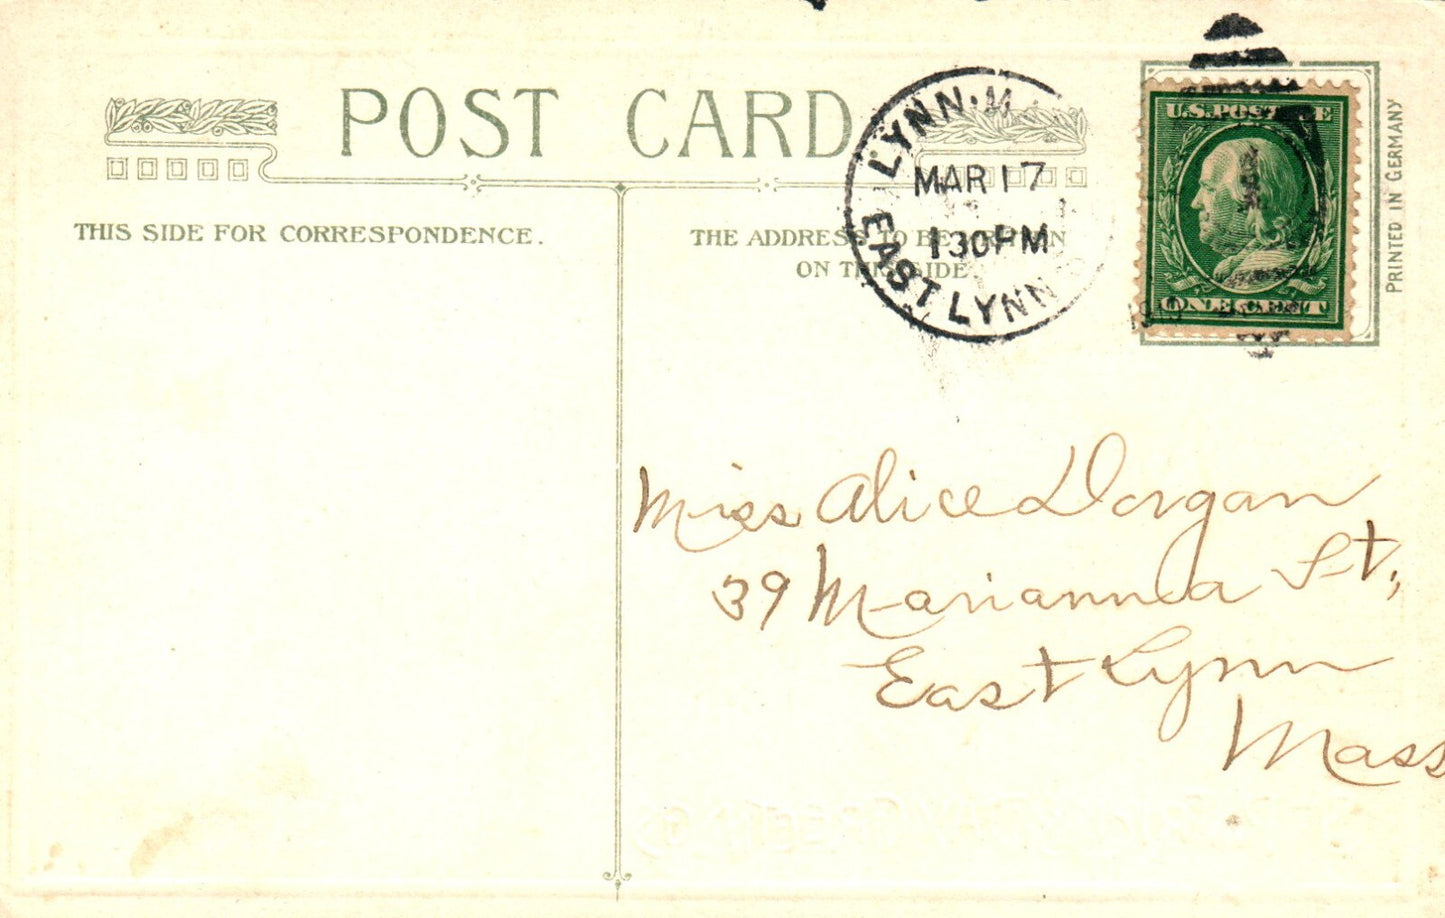 POST CARD
THIS SIDE FOR CORRESPONDENCE.
THE ADDRESS TO BE WRITTEN
ON THIS SIDE.
LYNN. M
MAR 17
1 30 PM
EAST LYNN
U.S. POSTAGE
ONE CENT
PRINTED IN GERMANY
Miss Alice Dorgan
39 Marianna St,
East Lynn
Mass
ST. PATRICK'S DAY GREETINGS